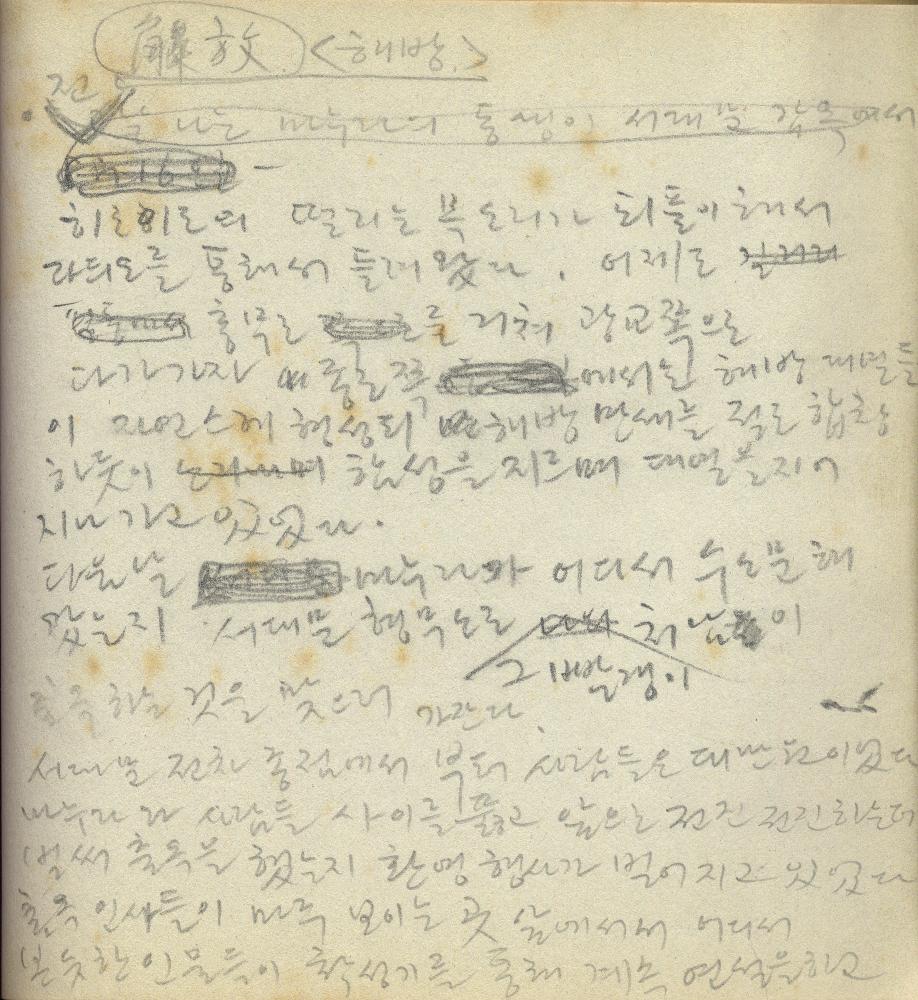 解放 <해방>
전
나는 마누라의 동생이 서대문 감옥에서
16일 -
히로히도의 떨리는 목소리가 되풀이해서
라듸오를 통해서 들려왔다. 어제로
충무로 를 거쳐 광교쪽으로
다가가자 종로쪽 에서는 해방 대열들
이 자연스레 형성되 해방 만세를 절로 합창
하듯이 함성을 지르며 대열을지어
지나가고 있었다.
다음날 마누라와 어디서 수소문해
왔는지 서대문 형무소로 처남이
그 빨갱이
출옥하는 것을 맞으러 가잔다.
서대문 전차 종점에서 부터 사람들은 대만원이었다
마누라와 사람들 사이를 뚫고 앞으로 전진 전진하는데
벌써 출옥을 했는지 환영행사가 벌어지고 있었다
출옥 인사들이 마주 보이는 곳 앞에서서 어디서
본듯한 인물들이 확성기를 통해 계속 연설을하고